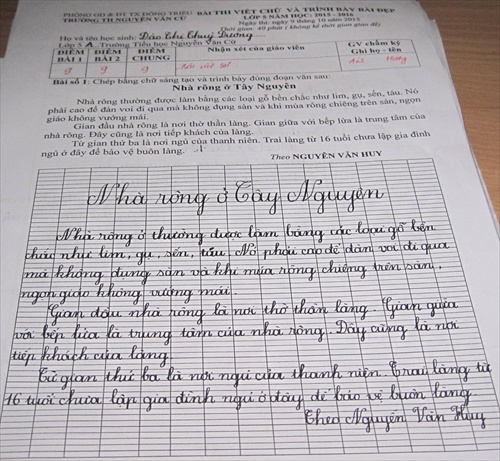 PHÒNG GD & ĐT TX ĐÔNG TRIỀU BÀI THI VIẾT CHỮ VÀ TRÌNH BÀY BÀI ĐẸP
TRƯỜNG TH NGUYỄN VĂN CỪ LỚP 5 NĂM HỌC: 2015 - 2016
Ngày thi: ngày 9 tháng 10 năm 2015
Thời gian: 40 phút ( không kể thời gian giao đề)
Họ và tên học sinh: Đào Thu Thuỳ Dương
Lớp 5 A Trường Tiểu học Nguyễn Văn Cừ
ĐIỂM BÀI 1 ĐIỂM BÀI 2 ĐIỂM CHUNG Nhận xét của giáo viên GV chấm ký Ghi họ - tên
9 9 9
Bài số 1: Chép bằng chữ sáng tạo và trình bày đúng đoạn văn sau:
Nhà rông ở Tây Nguyên
Nhà rông thường được làm bằng các loại gỗ bền chắc như lim, gụ, sến, táu. Nó
phải cao để đàn voi đi qua mà không đụng sàn và khi múa rông chiêng trên sàn, ngọn
giáo không vướng mái.
Gian đầu nhà rông là nơi thờ thần làng. Gian giữa với bếp lửa là trung tâm của
nhà rông. Đây cũng là nơi tiếp khách của làng.
Từ gian thứ ba là nơi ngủ của thanh niên. Trai làng từ 16 tuổi chưa lập gia đình
ngủ ở đây để bảo vệ buôn làng.
Theo NGUYỄN VĂN HUY
Nhà rông ở Tây Nguyên
Nhà rông ở thường được làm bằng các loại gỗ bền
chắc như lim, gụ, sến, táu. Nó phải cao để đàn voi đi qua
mà không đụng sàn và khi múa rông chiêng trên sàn,
ngọn giáo không vướng mái.
Gian đầu nhà rông là nơi thờ thần làng. Gian giữa
với bếp lửa là trung tâm của nhà rông. Đây cũng là nơi
tiếp khách của làng.
Từ gian thứ ba là nơi ngủ của thanh niên. Trai làng từ
16 tuổi chưa lập gia đình ngủ ở đây để bảo vệ buôn làng.
Theo Nguyễn Văn Huy